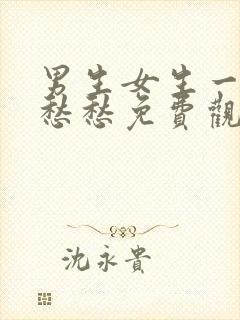 男生女生一
愁愁免費觀
沈永貴